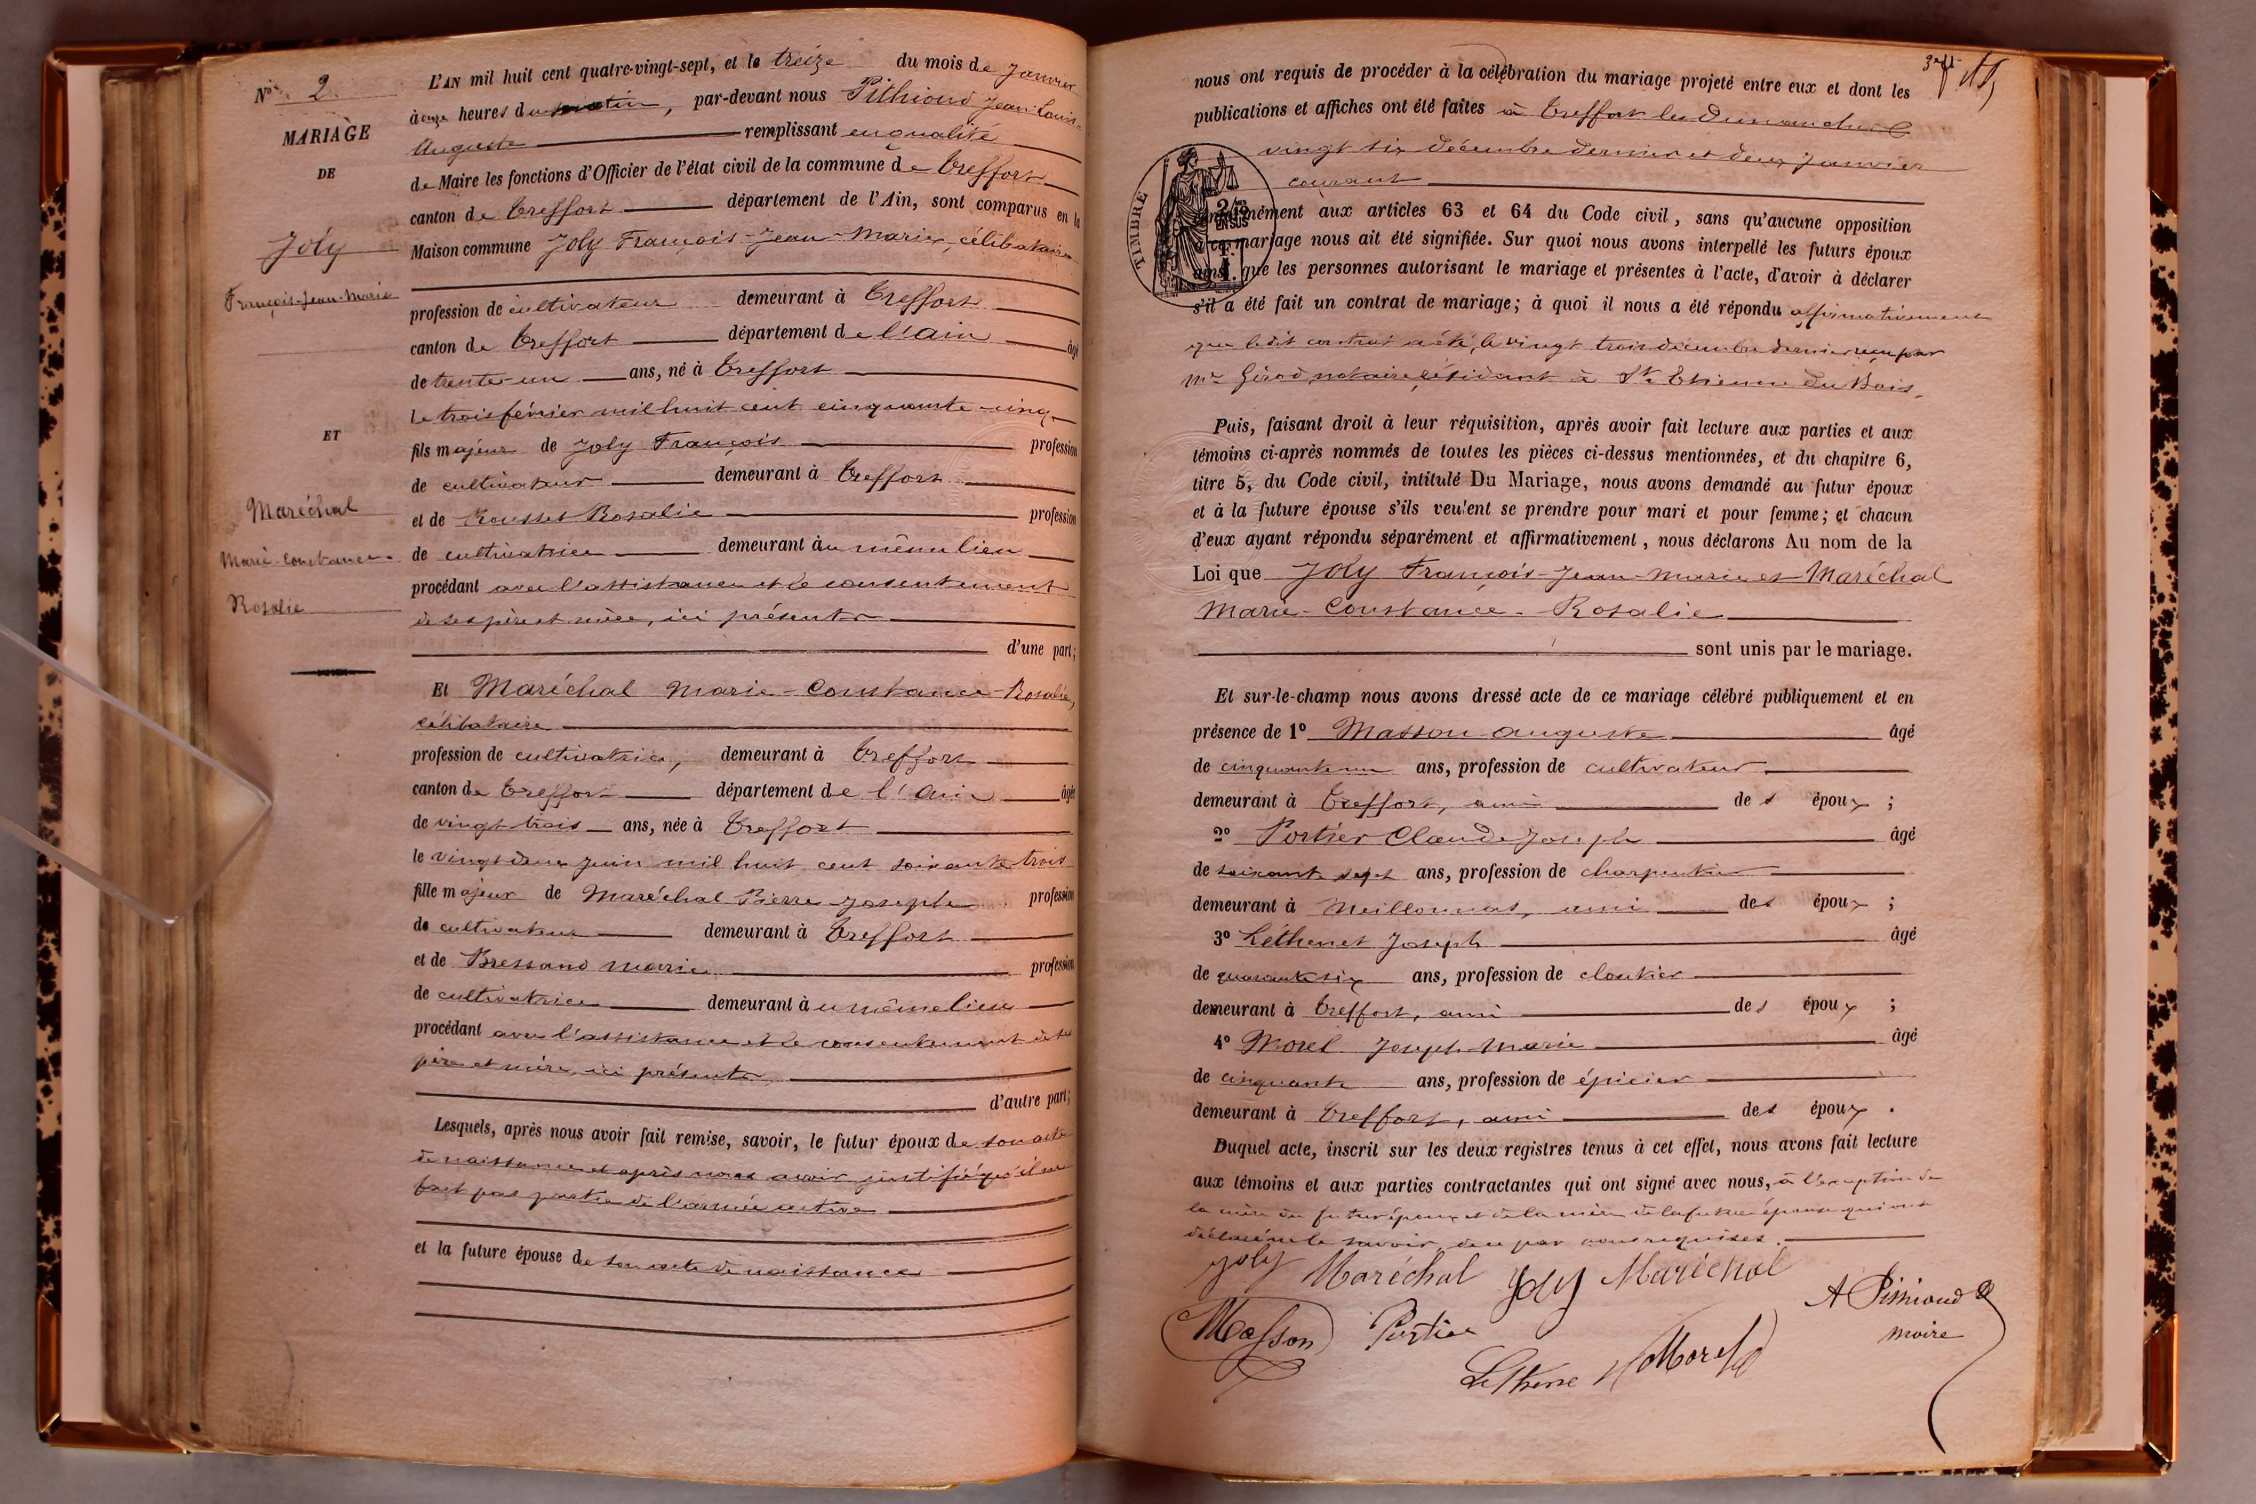 N° 2
MARIAGE
DE
Joly
François-Jean-Marie
ET
Maréchal
Marie-Constance-
Rosalie
L'AN mil huit cent quatre-vingt-sept, et le treize du mois de Janvier
à onze heures du matin, par-devant nous Pithioud Jean-Louis-
Auguste remplissant en qualité
de Maire les fonctions d'Officier de l'état civil de la commune de Treffort
canton de Treffort département de l'Ain, sont comparus en la
Maison commune Joly François-Jean-Marie, célibataire
profession de cultivateur demeurant à Treffort
canton de Treffort département de l'Ain âgé
de trente-un ans, né à Treffort
le trois février mil huit cent cinquante-cinq
fils majeur de Joly François profession
de cultivateur demeurant à Treffort
et de Rousset Rosalie profession
de cultivatrice demeurant au même lieu
procédant avec l'assistance et le consentement
de ses père et mère, ici présents
d'une part;
Et Maréchal Marie-Constance-Rosalie,
célibataire
profession de cultivatrice, demeurant à Treffort
canton de Treffort département de l'Ain âgée
de vingt trois ans, née à Treffort
le vingt deux Juin mil huit cent soixante trois
fille majeur de Maréchal Pierre-Joseph profession
de cultivateur demeurant à Treffort
et de Bressand Marie profession
de cultivatrice demeurant au même lieu
procédant avec l'assistance et le consentement de ses
père et mère, ici présents
d'autre part;
Lesquels, après nous avoir fait remise, savoir, le futur époux de son acte
de naissance et après nous avoir justifié qu'il ne
fait pas partie de l'armée active
et la future épouse de son acte de naissance
3e ft
nous ont requis de procéder à la célébration du mariage projeté entre eux et dont les
publications et affiches ont été faites à Treffort les dimanches
vingt six décembre dernier et deux Janvier
courant
TIMBRE
conformément aux articles 63 et 64 du Code civil, sans qu'aucune opposition
à ce mariage nous ait été signifiée. Sur quoi nous avons interpellé les futurs époux
ainsi que les personnes autorisant le mariage et présentes à l'acte, d'avoir à déclarer
s'il a été fait un contrat de mariage; à quoi il nous a été répondu affirmativement
que ledit contrat a été, le vingt trois décembre dernier reçu par
Me Girod, notaire, résidant à St Etienne du Bois.
Puis, faisant droit à leur réquisition, après avoir fait lecture aux parties et aux
témoins ci-après nommés de toutes les pièces ci-dessus mentionnées, et du chapitre 6,
titre 5, du Code civil, intitulé Du Mariage, nous avons demandé au futur époux
et à la future épouse s'ils veulent se prendre pour mari et pour femme; et chacun
d'eux ayant répondu séparément et affirmativement, nous déclarons Au nom de la
Loi que Joly François-Jean-Marie et Maréchal
Marie-Constance-Rosalie
sont unis par le mariage.
Et sur-le-champ nous avons dressé acte de ce mariage célébré publiquement et en
présence de 1° Masson Auguste âgé
de cinquante un ans, profession de cultivateur
demeurant à Treffort, ami des époux;
2° Portier Claude Joseph âgé
de soixante sept ans, profession de charpentier
demeurant à Meillonnas, ami des époux;
3° Léthenet Joseph âgé
de quarante six ans, profession de cloutier
demeurant à Treffort, ami des époux;
4° Morel Joseph Marie âgé
de cinquante ans, profession de épicier
demeurant à Treffort, ami des époux.
Duquel acte, inscrit sur les deux registres tenus à cet effet, nous avons fait lecture
aux témoins et aux parties contractantes qui ont signé avec nous, à l'exception de
la mère du futur époux et de la mère de la future épouse qui ont
déclaré ne le savoir, de ce par nous requises.
Joly Maréchal Joly Maréchal
A Pithioud
Masson Portier maire
Morel